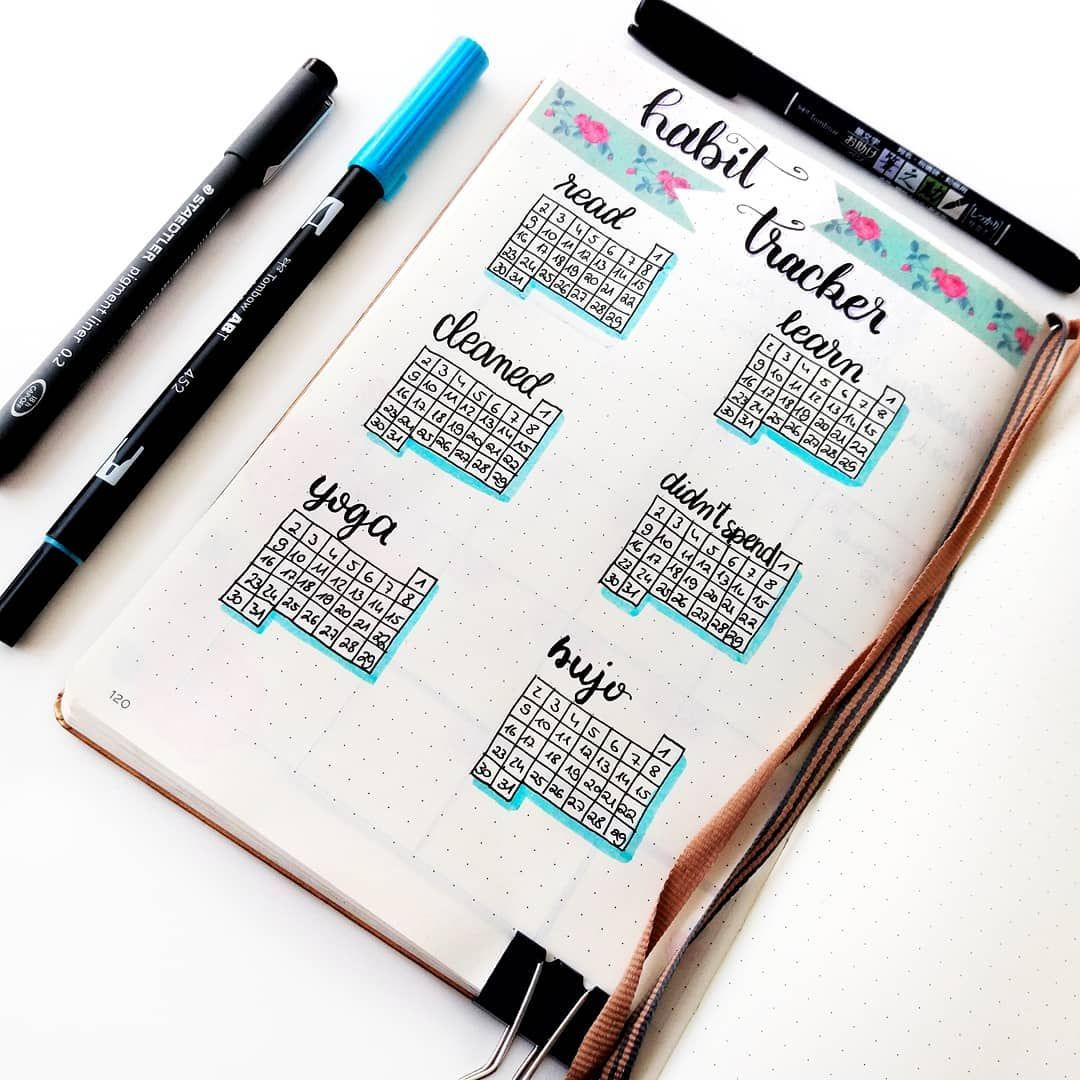 STAEDTLER
pigment liner 0.2
18 h
CAP-OFF
Tombow ABT
452
Tombow
筆文字
お助け
しっかり
habit
tracker
read
1
2 3 4 5 6 7 8
9 10 11 12 13 14 15
16 17 18 19 20 21 22
23 24 25 26 27 28 29
30 31
cleaned
1
2 3 4 5 6 7 8
9 10 11 12 13 14 15
16 17 18 19 20 21 22
23 24 25 26 27 28 29
30 31
yoga
1
2 3 4 5 6 7 8
9 10 11 12 13 14 15
16 17 18 19 20 21 22
23 24 25 26 27 28 29
30 31
learn
1
2 3 4 5 6 7 8
9 10 11 12 13 14 15
16 17 18 19 20 21 22
23 24 25 26 27 28 29
30 31
didn't spend
1
2 3 4 5 6 7 8
9 10 11 12 13 14 15
16 17 18 19 20 21 22
23 24 25 26 27 28 29
30 31
bujo
1
2 3 4 5 6 7 8
9 10 11 12 13 14 15
16 17 18 19 20 21 22
23 24 25 26 27 28 29
30 31
120